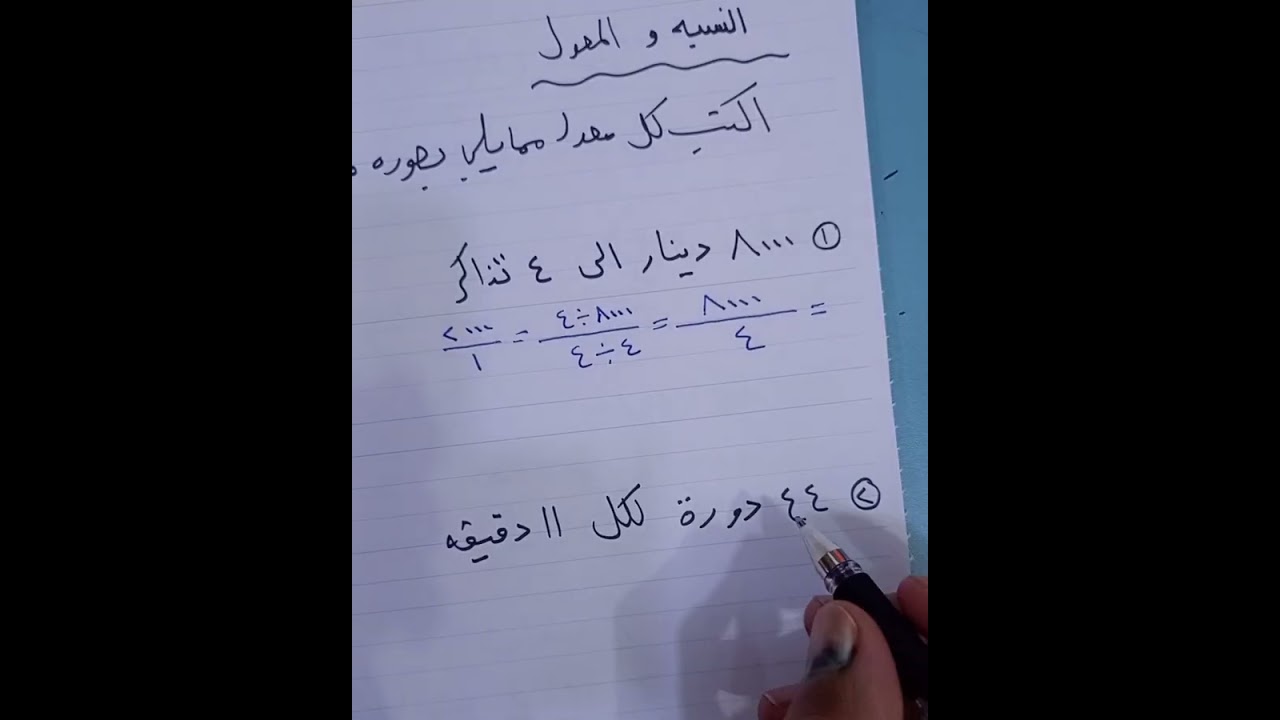 النسبه و المعدل
اكتب كل معدل ممايلي بصوره
① ٨٠٠٠ دينار الى ٤ تذاكر
= ٨٠٠٠/٤ = ٨٠٠٠÷٤/٤÷٤ = ٢٠٠٠/١
② ٤٤ دورة لكل ١١ دقيقه